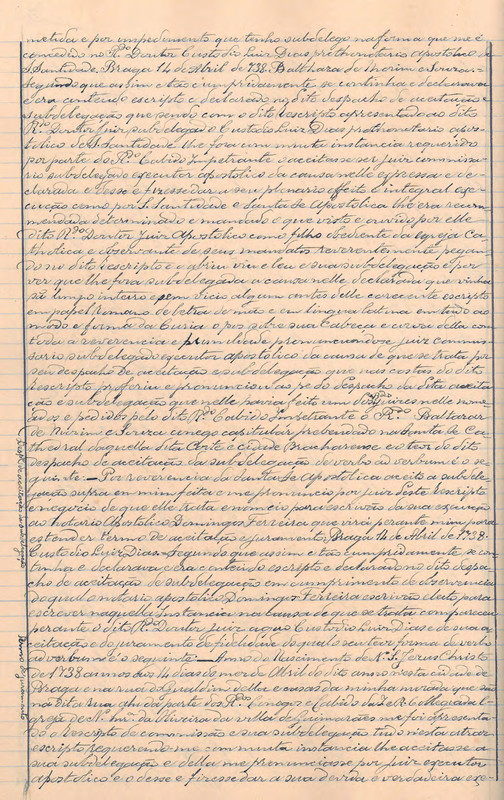 metida e por impedimento que tenho subdelego na forma que me é
concedido no R.do Doutor Custodio Luiz Dias prothonotario Apostolico de
S. Santidade, Braga 14 de Abril de 738. Balthazar de Morim e Souza =
Segundo que assim e tão cumpridamente se continha e declarava
e era contendo escripto e declarado no dito despacho de aceitação e
subdelegação que sendo com o dito rescripto apresentado ao dito
R.do Doutor Juiz subdelegado Custodio Luiz Dias prothonotario apos-
tolico de S. Santidade lhe fora com muita instancia requerido
por parte do R.do Cabido Impetrante o aceitasse ser juiz commissa-
rio subdelegado executor apostolico da causa nelle expressa e de-
clarada e desse e fizesse dar a seu plenario effeito e integral exe-
cução como por S. Santidade e Santa Sé Apostolica lhe era recom-
mendado determinado e mandado o que visto e ouvido por elle
dito R.do Doutor Juiz Apostolico como filho obediente da egreja Ca-
tholica e observante de seus mandatos reverentemente pegan-
do no dito rescripto e o abriu viu e leu e sua subdelegação e por
ver que lhe fora subdelegada a causa nelle declarada que vinha
são limpo inteiro e sem vicio algum antes delle carecente escripto
em papel romano de letra de mão e em lingua latina em tudo ao
modo e forma da Curia o poz sobre sua cabeça e curou della com
toda a reverencia e humildade pronunciando-se juiz commis-
sario subdelegado executor apostolico da causa de que se trata por
seu despacho de aceitação e subdelegação que nas costas do dito
Rescripto proferiu e pronunciou ao pé do despacho da dita aceita-
ção e subdelegação que nelle havia feito um dos Juizes nelle nome-
ados e pedidos pelo dito R.do Cabido Impetrante o R.do Baltazar
de Morim e Souza conego capitular prebendado na Santa Sé Ca-
thedral daquella dita Corte e cidade Bracharense e o teor do dito
despacho de aceitação da subdelegação de verbo ad verbum é o se-
guinte = Por reverencia da Santa Sé Apostolica aceito a subdele-
gação supra em mim feita e me pronuncio por juiz deste rescripto
e negocio de que elle trata e nomeio para escrivão da sua execução
ao Notario Apostolico Domingos Ferreira que virá perante mim para
estender termo de aceitação e juramento, Braga 14 de Abril de 1738
Custodio Luiz Dias = Segundo que assim e tão cumpridamente se con-
tinha e declarava e era contendo escripto e declarado no dito despa-
cho de aceitação de subdelegação em cumprimento de observancia
do qual o notario apostolico Domingos Ferreira escrivão eleito para
escrever naquella instancia na causa de que se trata compareceu
perante o dito R.do Doutor Juiz a quo Custodio Luiz Dias e de sua a-
ceitação e do juramento de fidelidade do qual seu teor forma de verbo
ad verbum é o seguinte = Anno do Nascimento de N. S. Jesus Christo
de 1738 annos aos 14 dias do mez de Abril do dito anno nesta cidade de
Braga e na rua de Gualtim della e casas da minha morada que são
na dita rua ahi da parte dos R.dos Conegos e Cabido da Sé R. Collegiada E-
greja de N. Snr.a da Oliveira da villa de Guimarães me foi apresenta-
do o Rescripto de commissão e sua subdelegação tudo nesta atraz
escripto requerendo-me com muita instancia lhe aceitasse a
sua subdelegação e della me pronunciasse por juiz executor
apostolico e o desse e fizesse dar a sua devida e verdadeira exe-
Despacho de aceitação da subdelegação
Termo de juramento